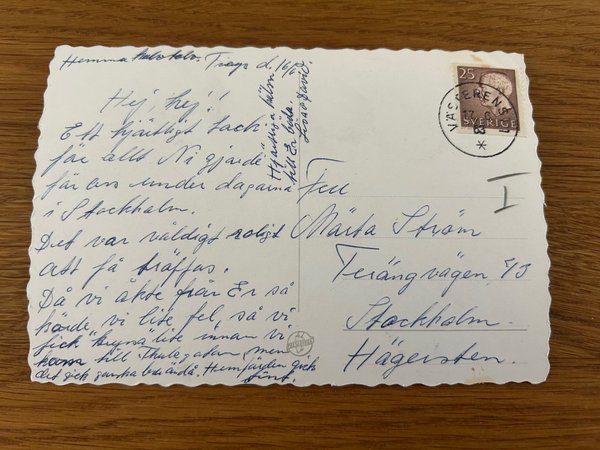 Hemma
d. 16/6
Hej, hej!
Ett hjärtligt tack
för allt Ni gjorde
för oss under dagarna
i Stockholm.
Det var väldigt roligt
att få träffas.
Då vi åkte från Er så
körde vi lite fel, så vi
fick lite innan vi
kom till Thulegatan, men
det gick ganska bra ändå. Hemfärden gick
fint.
Hjärtliga hälsn.
till Er båda.
David.
25
SVERIGE
Märta Ström
Terängvägen 53
Stockholm
Hägersten.